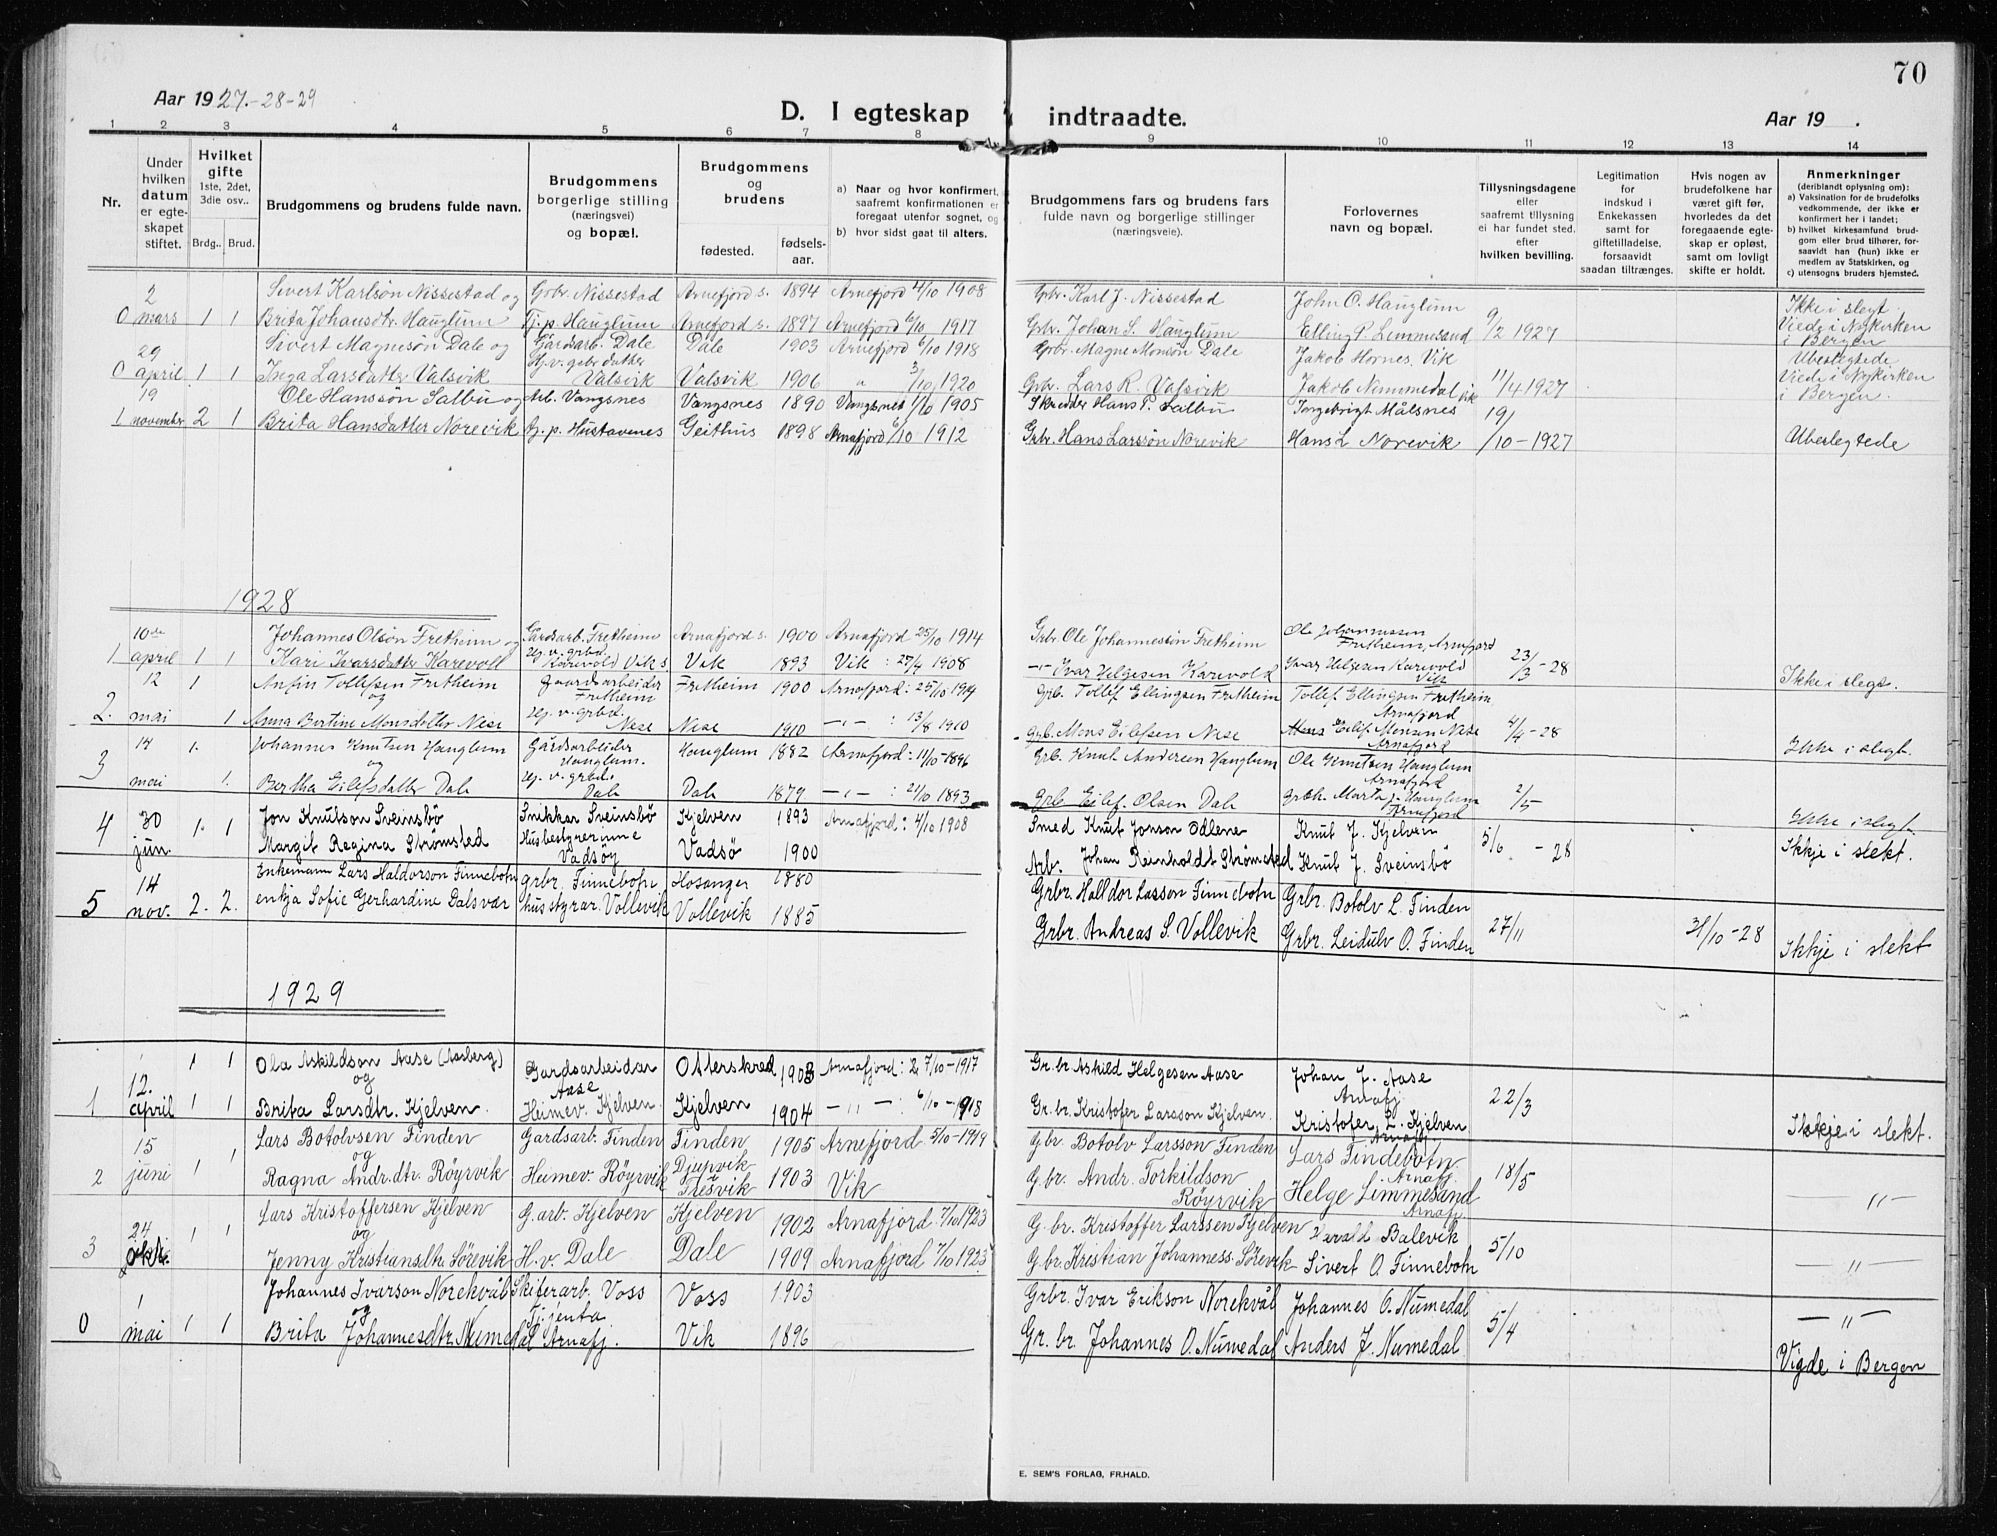 70
Aar 1927.-28-29
D. I egteskap indtraadte.
Aar 19 .
1 2 3 4 5 6 7 8 9 10 11 12 13 14
Nr.
Under hvilken datum er egteskapet stiftet.
Hvilket gifte 1ste, 2det, 3die osv..
Brdg.. Brud.
Brudgommens og brudens fulde navn.
Brudgommens borgerlige stilling (næringsvei) og bopæl.
Brudgommens og brudens
fødested. fødsels-aar.
a) Naar og hvor konfirmert, saafremt konfirmationen er foregaat utenfor sognet, og
b) hvor sidst gaat til alters.
Brudgommens fars og brudens fars fulde navn og borgerlige stillinger (næringsveie).
Forlovernes navn og bopæl.
Tillysningsdagene eller saafremt tillysning ei har fundet sted. efter hvilken bevilling.
Legitimation for indskud i Enkekassen samt for giftetilladelse, forsaavidt saadan tiltrænges.
Hvis nogen av brudefolkene har været gift før, hvorledes da det foregaaende egteskap er opløst, samt om lovligt skifte er holdt.
Anmerkninger (deriblandt oplysning om):
a) Vaksination for de brudefolks vedkommende, der ikke er konfirmert her i landet;
b) hvilket kirkesamfund brudgom eller brud tilhører, forsaavidt han (hun) ikke er medlem av Statskirken, og
c) utensogns bruders hjemsted.
2 Sivert Karlsön Nissestad og Grbr. Nissestad Arnefjord s. 1894 Arnefjord 4/10 1908 Grbr. Karl J. Nissestad John O. Hauglum Ikke i slegt
0 mars 1 1 Brita Johansdtr. Hauglum Tj. p. Hauglum Arnefjord s. 1897 Arnefjord 6/10 1917 Grbr. Johan S. Hauglum Elling P. Limmesand 9/2 1927 Viede i Nykirken i Bergen
29 Sivert Magnesön Dale og Gårdsarb. Dale Dale 1903 Arnefjord 6/10 1918 Grbr. Magne Monsön Dale Jakob Hornes. Vik Ubeslegtede
0 april 1 1 Inga Larsdatter Valsvik Hj. v. gbr. datter Valsvik Valsvik 1906 " 3/10 1920 Grbr. Lars R. Valsvik Jakob Nummedal Vik 11/4 1927 Viede i Nykirken i Bergen.
19 Ole Hanssön Salbu og Arb. Vangsnes Vangsnes 1890 Vangsnes 1/10 1905 Skredder Hans P. Salbu Ingebrigt Målsnes 19/
1 november 2 1 Brita Hansdatter Norevik Tj. p. Hustavenes Geithus 1898 Arnafjord 6/10 1912 Grbr. Hans Larssön Norevik Hans L Norevik 10-1927 Ubeslegtede
1928
10de Johannes Olsön Fretheim og Gårdsarb. Fretheim Arnafjord s. 1900 Arnafjord 25/10 1914 Grbr. Ole Johannessön Fretheim Ole Johannessen Fretheim, Arnafjord
1 april 1 1 Kari Ivarsdatter Karevoll Hj. v. grbd. Karevold Vik s Vik 1893 Vik : 27/4 1908 -"- Ivar Helgesen Karevold Ivar Helgesen Karevold Vik 23/3-28 Ikke i slegt.
12 1 Anfin Tollefsen Fretheim og Gaardsarbeider Fretheim Fretheim 1900 Arnafjord: 25/10 1914 Grb. Tollef Ellingsen Fretheim Tollef Ellingsen Fretheim Arnafjord
2. mai 1 Anna Bertine Monsdatter Nese Hj. v. grbd. Nese Nese 1910 -"- : 13/8 1910 Grb. Mons Eilefsen Nese Eilef Monsen Nese Arnafjord 4/4-28 Ikke i slegt.
14 1. Johannes Knutsen Hauglum og Gårdsarbeider Hauglum. Hauglum 1882 Arnafjord: 11/10-1896 Grb. Knut Andersen Hauglum Ole Knutsen Hauglum Arnafjord
3 mai 1. Bertha Eilefsdatter Dale Hj. v. grbd. Dale Dale 1879 -"- : 21/10 1893 Grb. Eilef. Olsen Dale Grbk. Marta Hauglum Arnafjord 2/5- Ikke i slegt.
4 30 jun. 1. 1 Jon Knutson Sveinsbö Snikkar Sveinsbö Kjelven 1893 Arnafjord: 4/10 1908 Smed Knut Jonson Odlene Knut J. Kjelven 5/6 - 28 Ikkje i slekt.
Margit Regina Strømsted Husbestyrerinne Vadsöy Vadsö 1900 Arb. Johan Reinholdt Strømsted Knut J. Sveinsbö
5 14 nov. 2. 2. Enkemann Lars Haldorson Finnebotn grbr. Finnebotn Hosanger 1880 Grbr. Halldor Lasson Finnebotn Grbr. Botolv L. Finden
enkja Sofie Gerhardine Dalsvær husstyrar. Vollevik Vollevik 1885 Grbr. Andreas S. Vollevik Grbr. Leidulv O. Finden 27/11 31/10-28 Ikkje i slekt
1929
12. 1 1 Ola Askildson Aase (Aasberg) og Gardsarbeidar Aase Otterskred 1903 Arnafjord: 2 7/10-1917 Gr. br. Askild Helgesen Aase Johan J. Aase Arnafj
1 april 1 1 Brita Larsdtr. Kjelven. Heimev. Kjelven Kjelven 1904 -"- : 6/10-1918 Gr. br. Kristofer Larsson Kjelven. Kristofer L. Kjelven Arnafj 22/3 Ikkje i slekt.
15 Lars Botolvsen Finden og Gardsarb. Finden Finden 1905 Arnefjord 5/10-1919 Gbr. Botolv Larsson Finden Lars Findebotn. Arnafj
2 juni 1 1 Ragna Andr.dtr. Röyrvik Heimev. Röyrvik Djupvik Fresvik 1903 Vik G.br. Andr. Torkildson Röyrvik Helge Limmesand Arnafj. 18/5 - " -
24 1 1 Lars Kristoffersen Kjelven og G. arb. Kjelven Kjelven 1902 Arnafjord 7/10 1923 G. br. Kristoffer Larssen Kjelven Harald Balevik
3 okt. Jenny Kristiansdtr. Sörevik H. v. Dale Dale 1909 Arnafjord 7/10 1923 G. br. Kristian Johanness. Sörevik Sivert O. Finnebotn 5/10 - " -
1 Johannes Ivarson Norekvål og Skiferarb. Voss Voss 1903 Grbr. Ivar Erikson Norekvål Johannes O. Numedal
0 mai 1 1 Brita Johannesdtr. Numedal Tj. jenta Arnafj. Vik 1896 Gr. br. Johannes O. Numedal Anders J. Numedal 5/4 - " -
Vigde i Bergen
E. SEM'S FORLAG, FR.HALD.